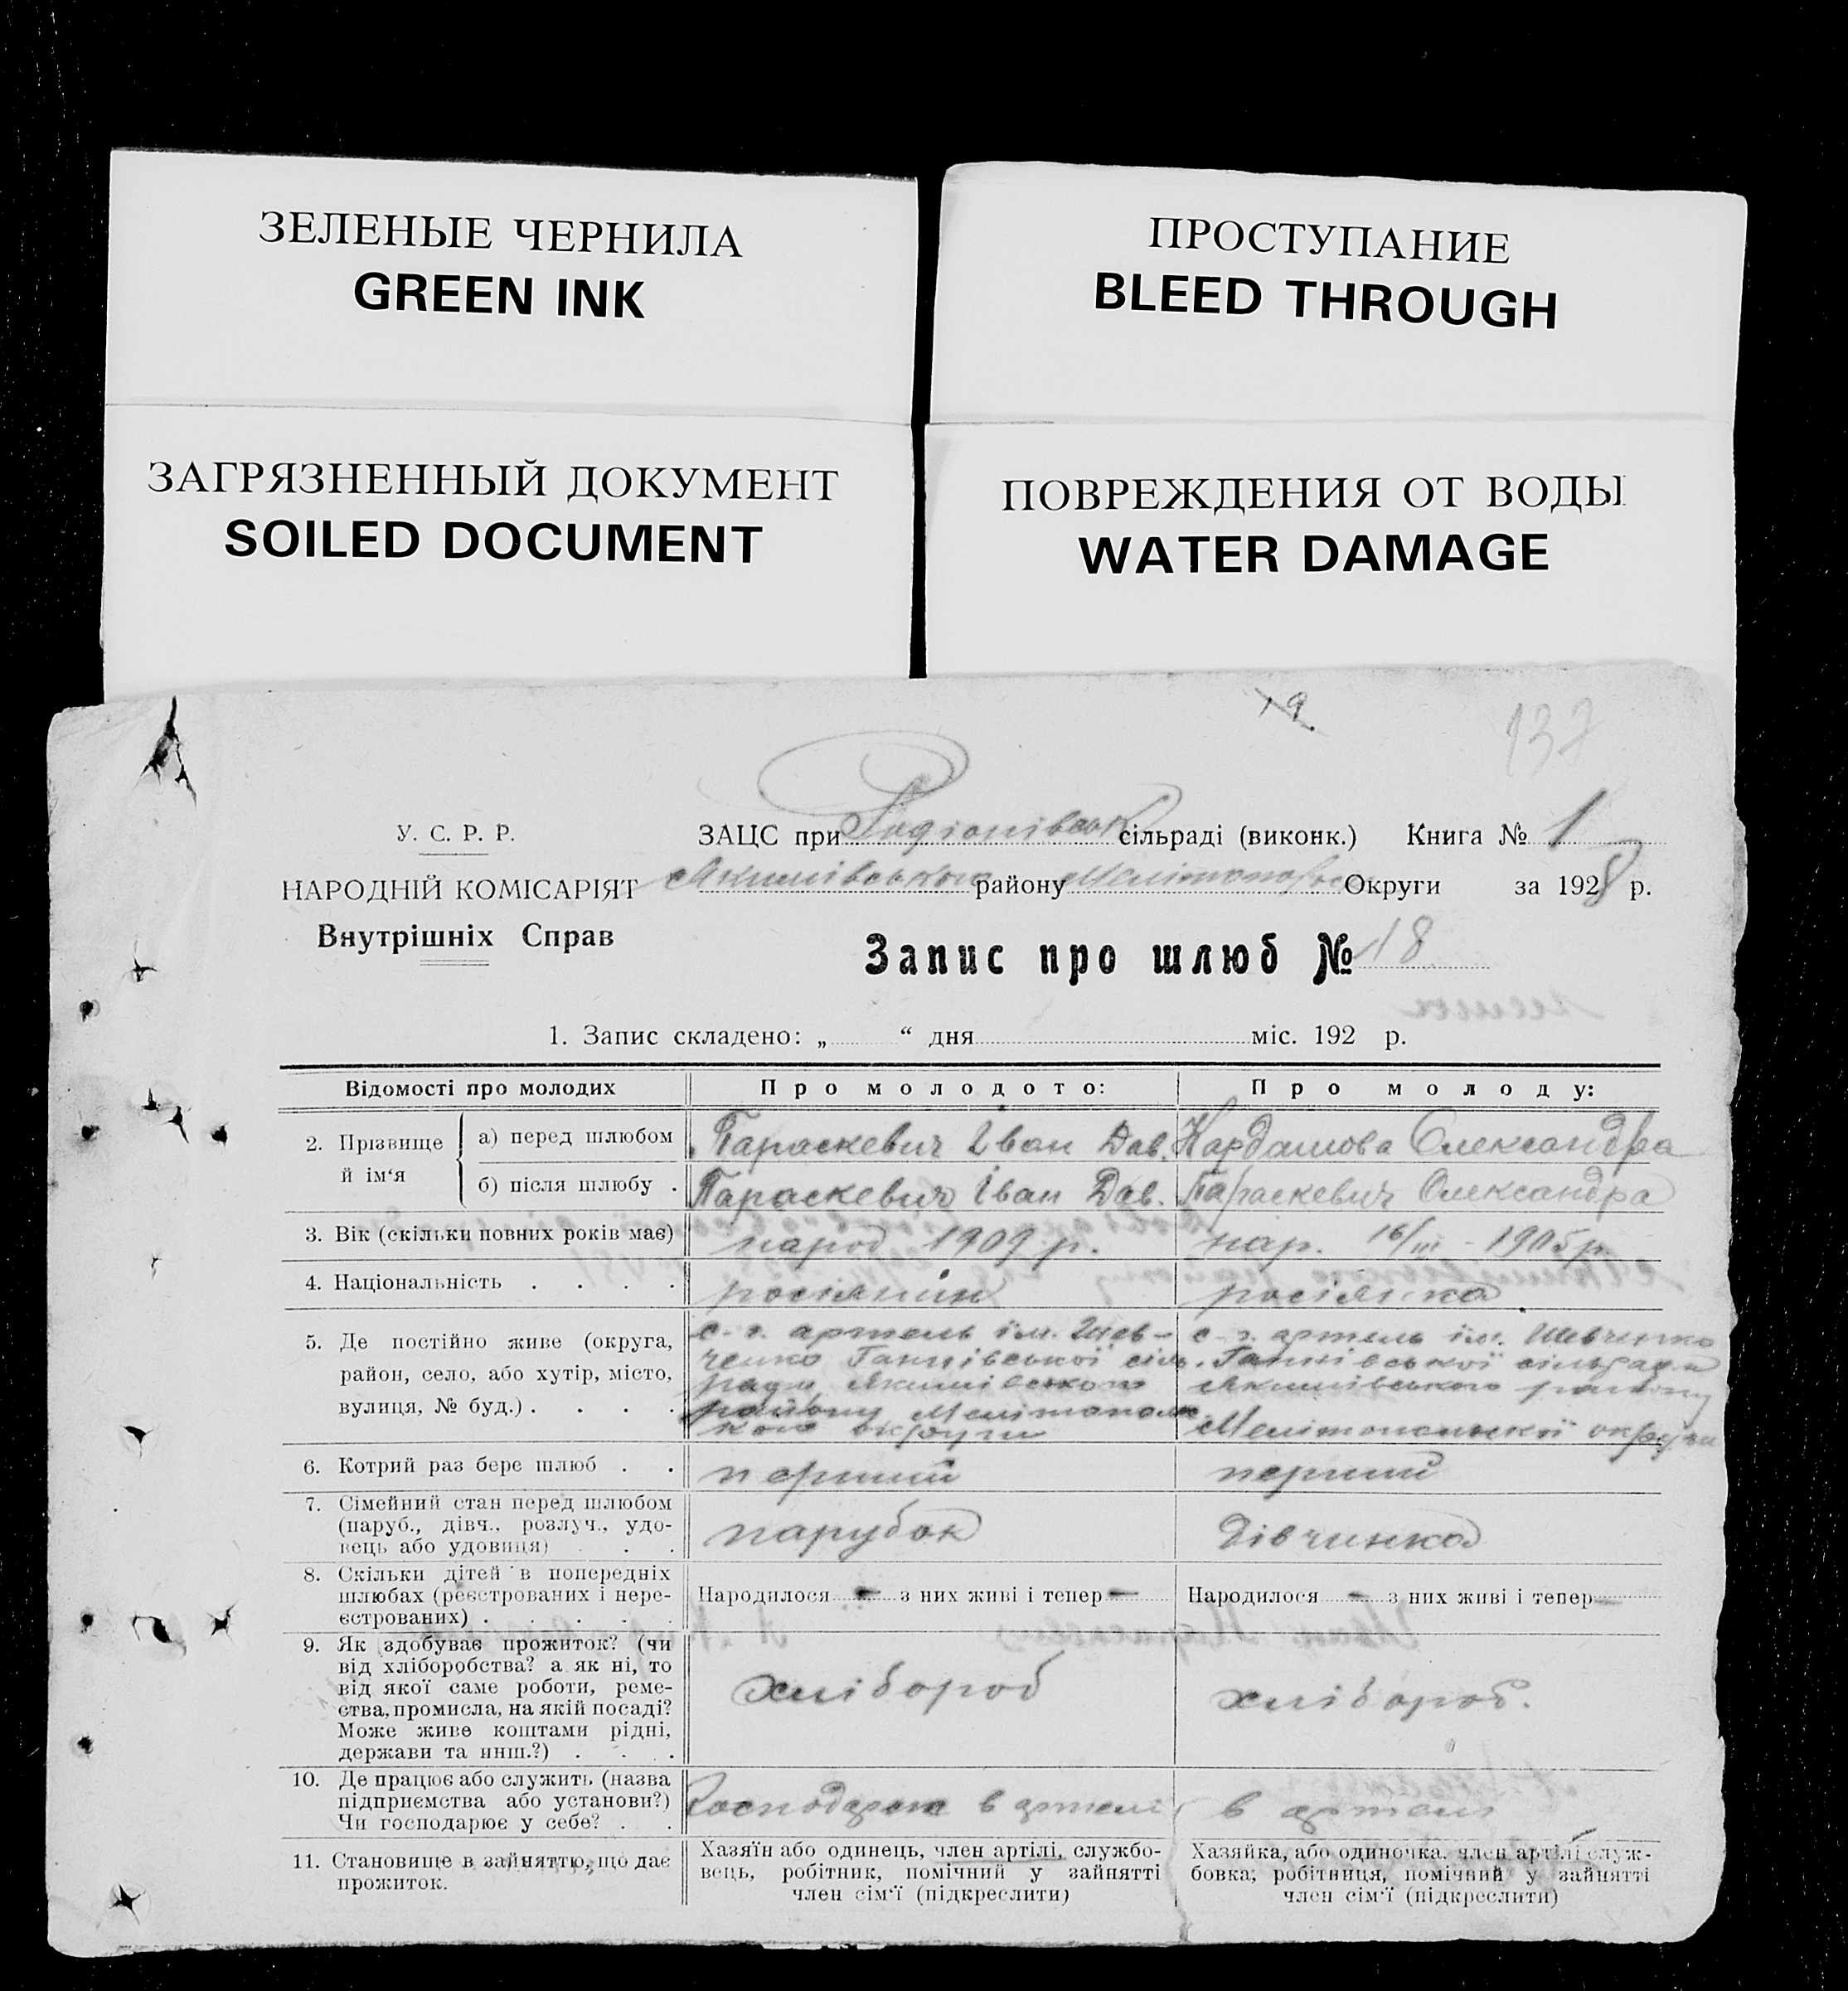 ЗЕЛЕНЫЕ ЧЕРНИЛА
GREEN INK
ПРОСТУПАНИЕ
BLEED THROUGH
ЗАГРЯЗНЕННЫЙ ДОКУМЕНТ
SOILED DOCUMENT
ПОВРЕЖДЕНИЯ ОТ ВОДЫ
WATER DAMAGE
19
137
У. С. Р. Р.
НАРОДНІЙ КОМІСАРІЯТ
Внутрішніх Справ
ЗАЦС при Родіонівськ сільраді (виконк.) Книга № 1
Якимівського району Мелітопольс Округи за 1928 р.
Запис про шлюб № 18
1. Запис складено: „ “ дня міс. 192 р.
Відомості про молодих
Про молодого:
Про молоду:
2. Прізвище й ім‘я
а) перед шлюбом
Параскевич Іван Дав.
Кардашова Олександра
б) після шлюбу .
Параскевич Іван Дав.
Параскевич Олександра
3. Вік (скільки повних років має)
народ 1909 р.
нар. 16/III - 1905 р.
4. Національність . . . .
росіянин
росіянка
5. Де постійно живе (округа,
район, село, або хутір, місто,
вулиця, № буд.) . . . .
с. г. артель ім. Шев-
ченко Ганнівської сіль.
ради Якимівського
району Мелітопольс
кої округи
с. г. артель ім. Шевченко
Ганнівської сільради
Якимівського району
Мелітопольської округи
6. Котрий раз бере шлюб . .
перший
перший
7. Сімейний стан перед шлюбом
(паруб., дівч., розлуч., удо-
вець або удовиця) . . .
парубок
дівчинка
8. Скільки дітей в попередніх
шлюбах (реєстрованих і нере-
єстрованих) . . . . .
Народилося — з них живі і тепер —
Народилося — з них живі і тепер —
9. Як здобуває прожиток? (чи
від хліборобства? а як ні, то
від якої саме роботи, реме-
ства, промисла, на якій посаді?
Може живе коштами рідні,
держави та инш.?) . . .
хлібороб
хлібороб.
10. Де працює або служить (назва
підприємства або установи?)
Чи господарює у себе? . .
в артелі
в артелі
11. Становище в зайняттю, що дає
прожиток.
Хазяїн або одинець, член артілі, службо-
вець, робітник, помічний у зайнятті
член сім‘ї (підкреслити)
Хазяйка, або одиночка, член артілі служ-
бовка; робітниця, помічний у зайнятті
член сім‘ї (підкреслити)